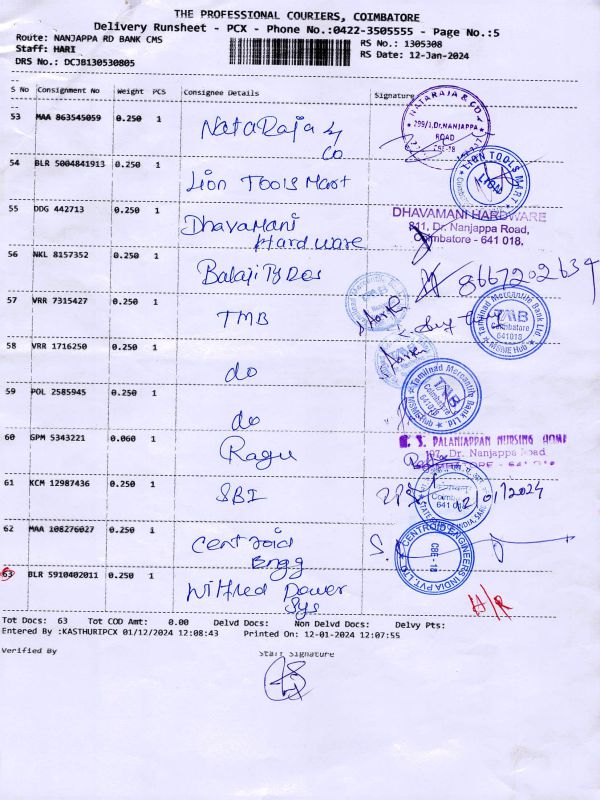 THE PROFESSIONAL COURIERS, COIMBATORE
Delivery Runsheet - PCX - Phone No.:0422-3505555 - Page No.:5
Route: NANJAPPA RD BANK CMS
RS No.: 1305308
Staff: HARI
RS Date: 12-Jan-2024
DRS No.: DCJ8130530805
S No Consignment No Weight PCS Consignee Details Signature
53 MAA 863545059 0.250 1 NataRaja & Co
NATARAJA & CO
299/1, Dr. NANJAPPA
ROAD
CBE-18
54 BLR 5004841913 0.250 1 Lion Tools Mart
LION TOOLS MART
55 DDG 442713 0.250 1 Dhavamani
Hardware
DHAVAMANI HARDWARE
811, Dr. Nanjappa Road,
Coimbatore - 641 018.
56 NKL 8157352 0.250 1 Balaji
8667202634
57 VRR 7315427 0.250 1 TMB
Tamilnad Mercantile Bank Ltd
TMB
Coimbatore
641018
MSME Hub
58 VRR 1716250 0.250 1 do
59 POL 2585945 0.250 1 do
Tamilnad Mercantile Bank Ltd
TMB
Coimbatore
641018
MSME Hub
60 GPM 5343221 0.060 1 Ragu
PALANIAPPAN NURSING HOME
197, Dr. Nanjappa Road
COIMBATORE - 641 018
61 KCM 12987436 0.250 1 SBI
12/01/2024
62 MAA 108276027 0.250 1 Centroid
Engg
CENTROID ENGINEERS INDIA PVT. LTD
CBE - 18
63 BLR 5910402011 0.250 1 Wilfred Power
Sys
H/R
Tot Docs: 63 Tot COD Amt: 0.00 Delvd Docs: Non Delvd Docs: Delvy Pts:
Entered By :KASTHURIPCX 01/12/2024 12:08:43 Printed On: 12-01-2024 12:07:55
Verified By Staff Signature